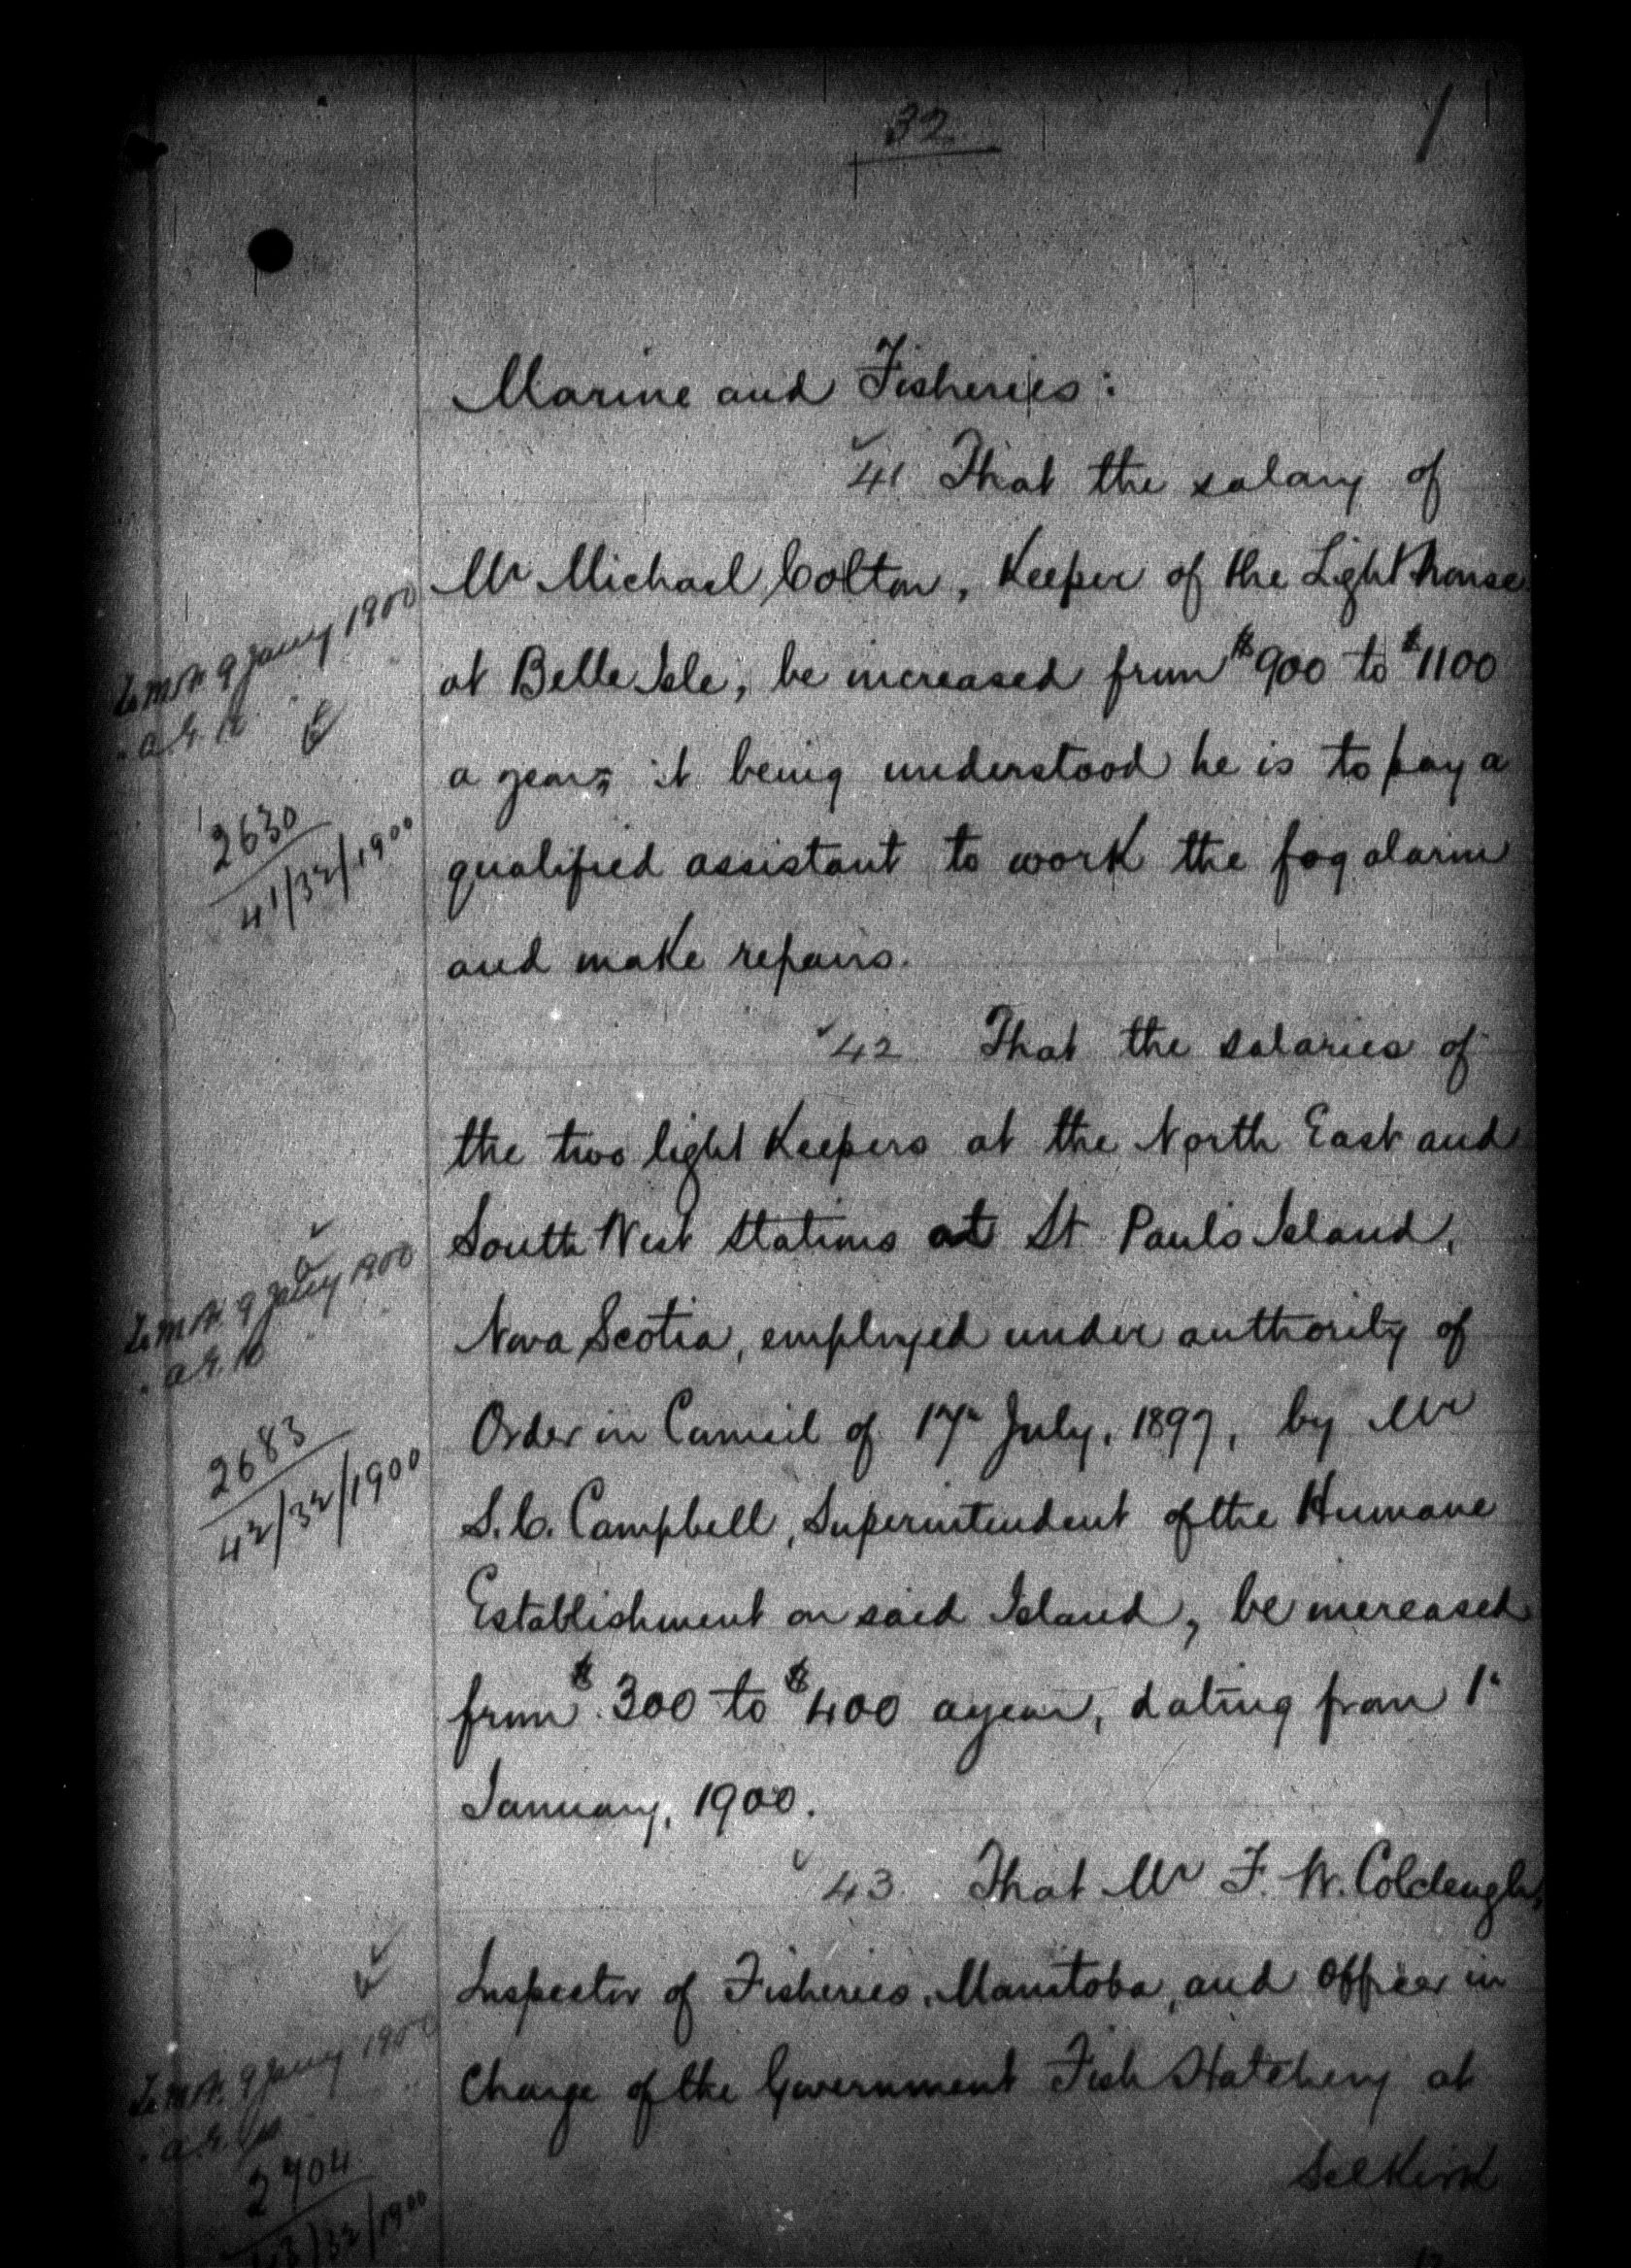 32
Marine and Fisheries:
41 That the salary of
Mr Michael Colton, Keeper of the Light house
at Belle Isle, be increased from $900 to $1100
a year; it being understood he is to pay a
qualified assistant to work the fog alarm
and make repairs.
9 Jany 1900
2630
41/32/1900
42 That the salaries of
the two light Keepers at the North East and
South West Stations at St Paul's Island,
Nova Scotia, employed under authority of
Order in Council of 17th July, 1897, by Mr
S. C. Campbell, Superintendent of the Humane
Establishment on said Island, be increased
from $300 to $400 a year, dating from 1st
January, 1900.
9 Jany 1900
2683
42/32/1900
43. That Mr F. W. Colcleugh,
Inspector of Fisheries, Manitoba, and Officer in
Charge of the Government Fish Hatchery at
9 Jany 1900
2704
43/32/1900
Selkirk